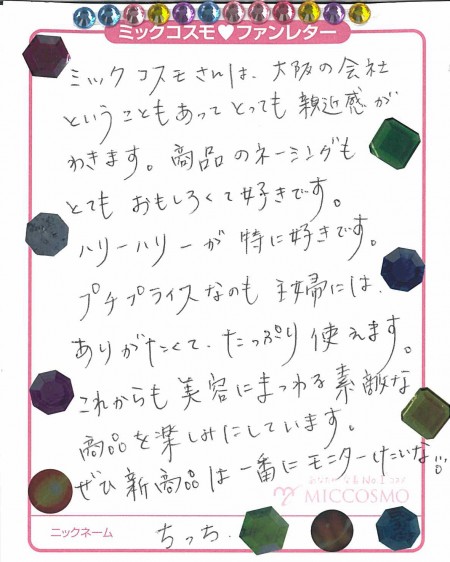 ミックコスモ♥ファンレター
ミックコスモさんは、大阪の会社
ということもあってとっても親近感が
わきます。商品のネーミングも
とてもおもしろくて好きです。
ハリーハリーが特に好きです。
プチプライスなのも主婦には、
ありがたくて、たっぷり使えます。
これからも美容にまつわる素敵な
商品を楽しみにしています。
ぜひ新商品は一番にモニターしたいな。
MICCOSMO
ニックネーム ちっち.